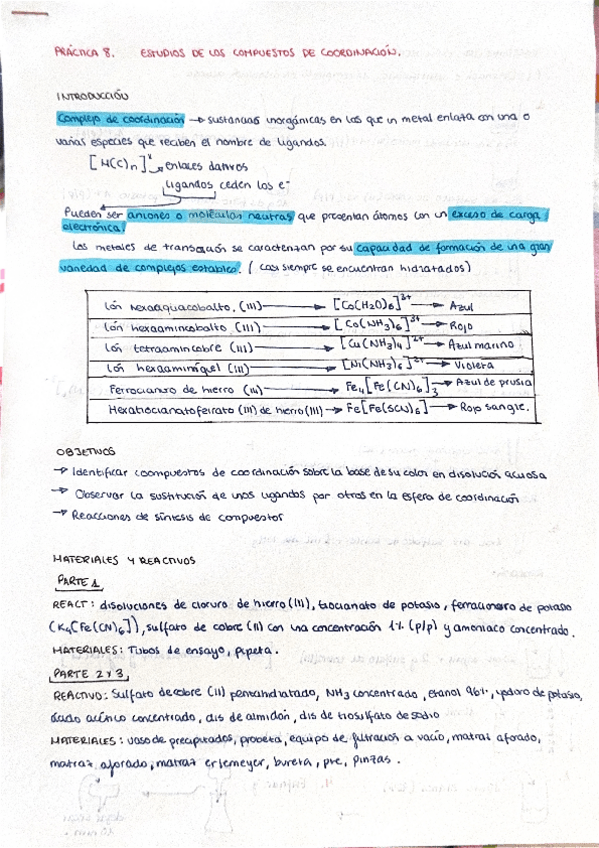 PRÁCTICA 8. ESTUDIOS DE LOS COMPUESTOS DE COORDINACIÓN.
INTRODUCCIÓN
Complejo de coordinación → sustancias inorgánicas en las que un metal enlaza con una o
varias especies que reciben el nombre de ligandos.
[M(L)n] → enlaces dativos
ligandos ceden los e⁻
Pueden ser aniones o moléculas neutras que presentan átomos con un exceso de carga
electrónica.
Los metales de transición se caracterizan por su capacidad de formación de una gran
variedad de complejos estables. (casi siempre se encuentran hidratados)
Ión hexaaquacobalto (III) → [Co(H2O)6]3+ → Azul
Ión hexaamincobalto (III) → [Co(NH3)6]3+ → Rojo
Ión tetraamincobre (III) → [Cu(NH3)4]2+ → Azul marino
Ión hexaaminníquel (III) → [Ni(NH3)6]2+ → Violeta
Ferrocianuro de hierro (III) → Fe4[Fe(CN)6]3 → Azul de prusia
Hexatiocianatoferrato (III) de hierro (III) → Fe[Fe(SCN)6] → Rojo sangre.
OBJETIVOS
→ Identificar coompuestos de coordinación sobre la base de su color en disolución acuosa
→ Observar la sustitución de unos ligandos por otros en la esfera de coordinación
→ Reacciones de síntesis de compuestos
MATERIALES Y REACTIVOS
PARTE 1
REACT: disoluciones de cloruro de hierro (III), tiocianato de potasio, ferrocianuro de potasio
(K4[Fe(CN)6]), sulfato de cobre (II) con una concentración 1% (p/p) y amoniaco concentrado.
MATERIALES: Tubos de ensayo, pipeta.
PARTE 2 y 3
REACTIVO: Sulfato de cobre (II) pentahidratado, NH3 concentrado, etanol 96%, yoduro de potasio,
ácido acético concentrado, dis de almidón, dis de tiosulfato de sodio
MATERIALES: vaso de precipitados, probeta, equipo de filtración a vacío, matraz aforado,
matraz aforado, matraz erlemeyer, bureta, pie, pinzas.